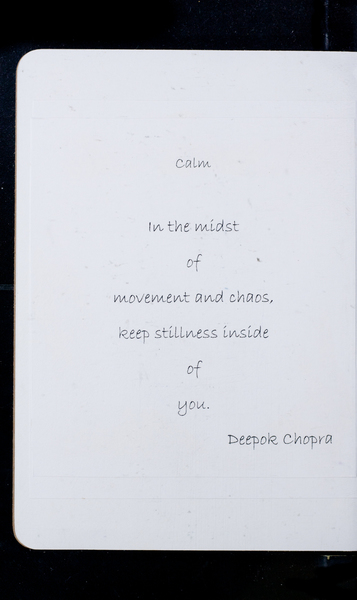 Calm
In the midst
of
movement and chaos,
keep stillness inside
of
you.
Deepok Chopra